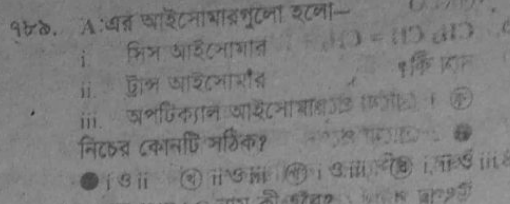 ৭৮৯. A: এর আইসোমারগুলো হলো—
i সিস আইসোমার
ii. ট্রান্স আইসোমার
iii. অপটিক্যাল আইসোমার
নিচের কোনটি সঠিক?
i ও ii ii ও iii i ও iii i, ii ও iii